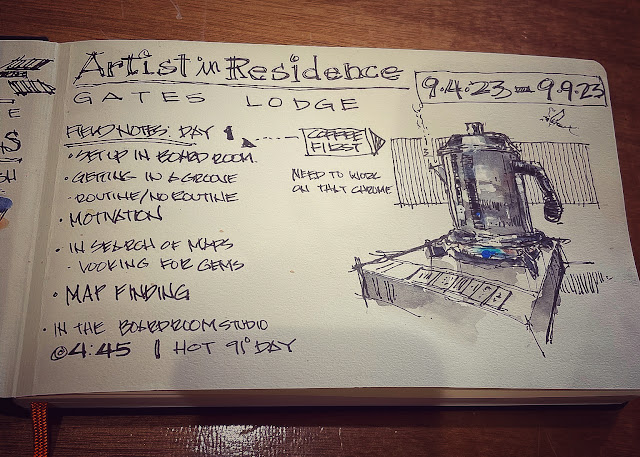 Artist in Residence
GATES LODGE
9.4.23 - 9.9.23
FIELD NOTES: DAY 1
COFFEE FIRST
• SETUP IN BOARD ROOM
• GETTING IN A GROOVE
- ROUTINE/NO ROUTINE
• MOTIVATION
NEED TO WORK
ON THAT CHROME
• IN SEARCH OF MAPS
- LOOKING FOR GEMS
• MAP FINDING
• IN THE BOARDROOM STUDIO
@4:45 | HOT 91° DAY
E
S
SH